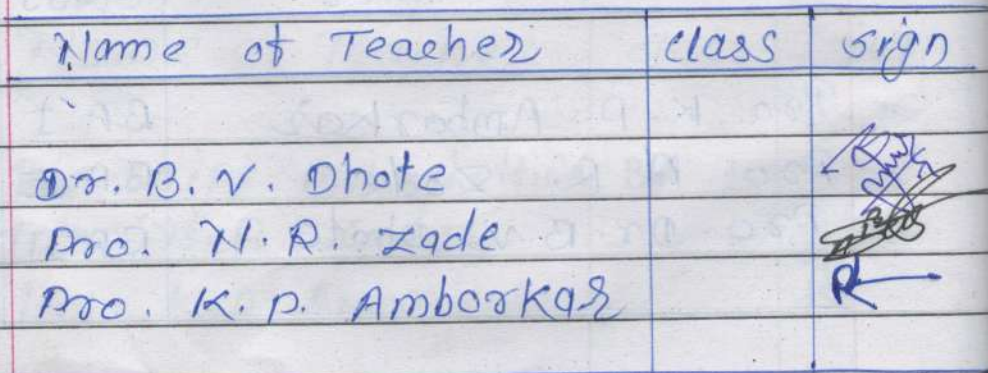 Name of Teacher class sign
Dr. B. V. Dhote
Pro. N. R. Zade
Pro. K. P. Amborkar